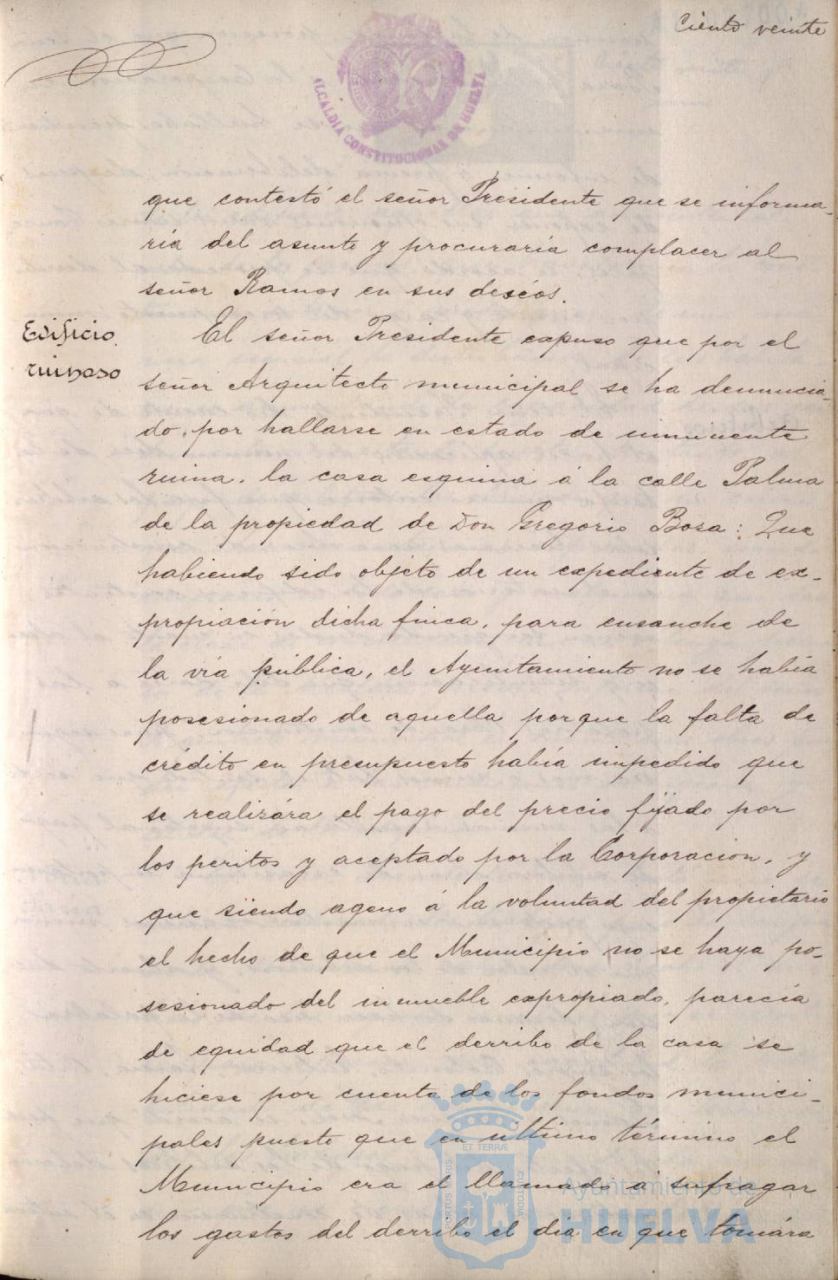 Ciento veinte
ALCALDIA CONSTITUCIONAL DE HUELVA
que contestó el señor Presidente que se informa-
ría del asunto y procuraría complacer al
señor Ramos en sus deséos.
Edificio
ruinoso
El señor Presidente expuso que por el
señor Arquitecto municipal se ha denuncia-
do, por hallarse en estado de inminente
ruina, la casa esquina á la calle Palma
de la propiedad de Don Gregorio Bosa: Que
habiendo sido objeto de un expediente de ex-
propiación dicha finca, para ensanche de
la vía pública, el Ayuntamiento no se había
posesionado de aquella porque la falta de
crédito en presupuesto había impedido que
se realizára el pago del precio fijado por
los peritos y aceptado por la Corporación, y
que siendo ageno á la voluntad del propietario
el hecho de que el Municipio no se haya po-
sesionado del inmueble expropiado, parecía
de equidad que el derribo de la casa se
hiciese por cuenta de los fondos munici-
pales puesto que en ultimo término el
Municipio era el llamado á sufragar
los gastos del derribo el dia en que tomára
Ayuntamiento de
HUELVA